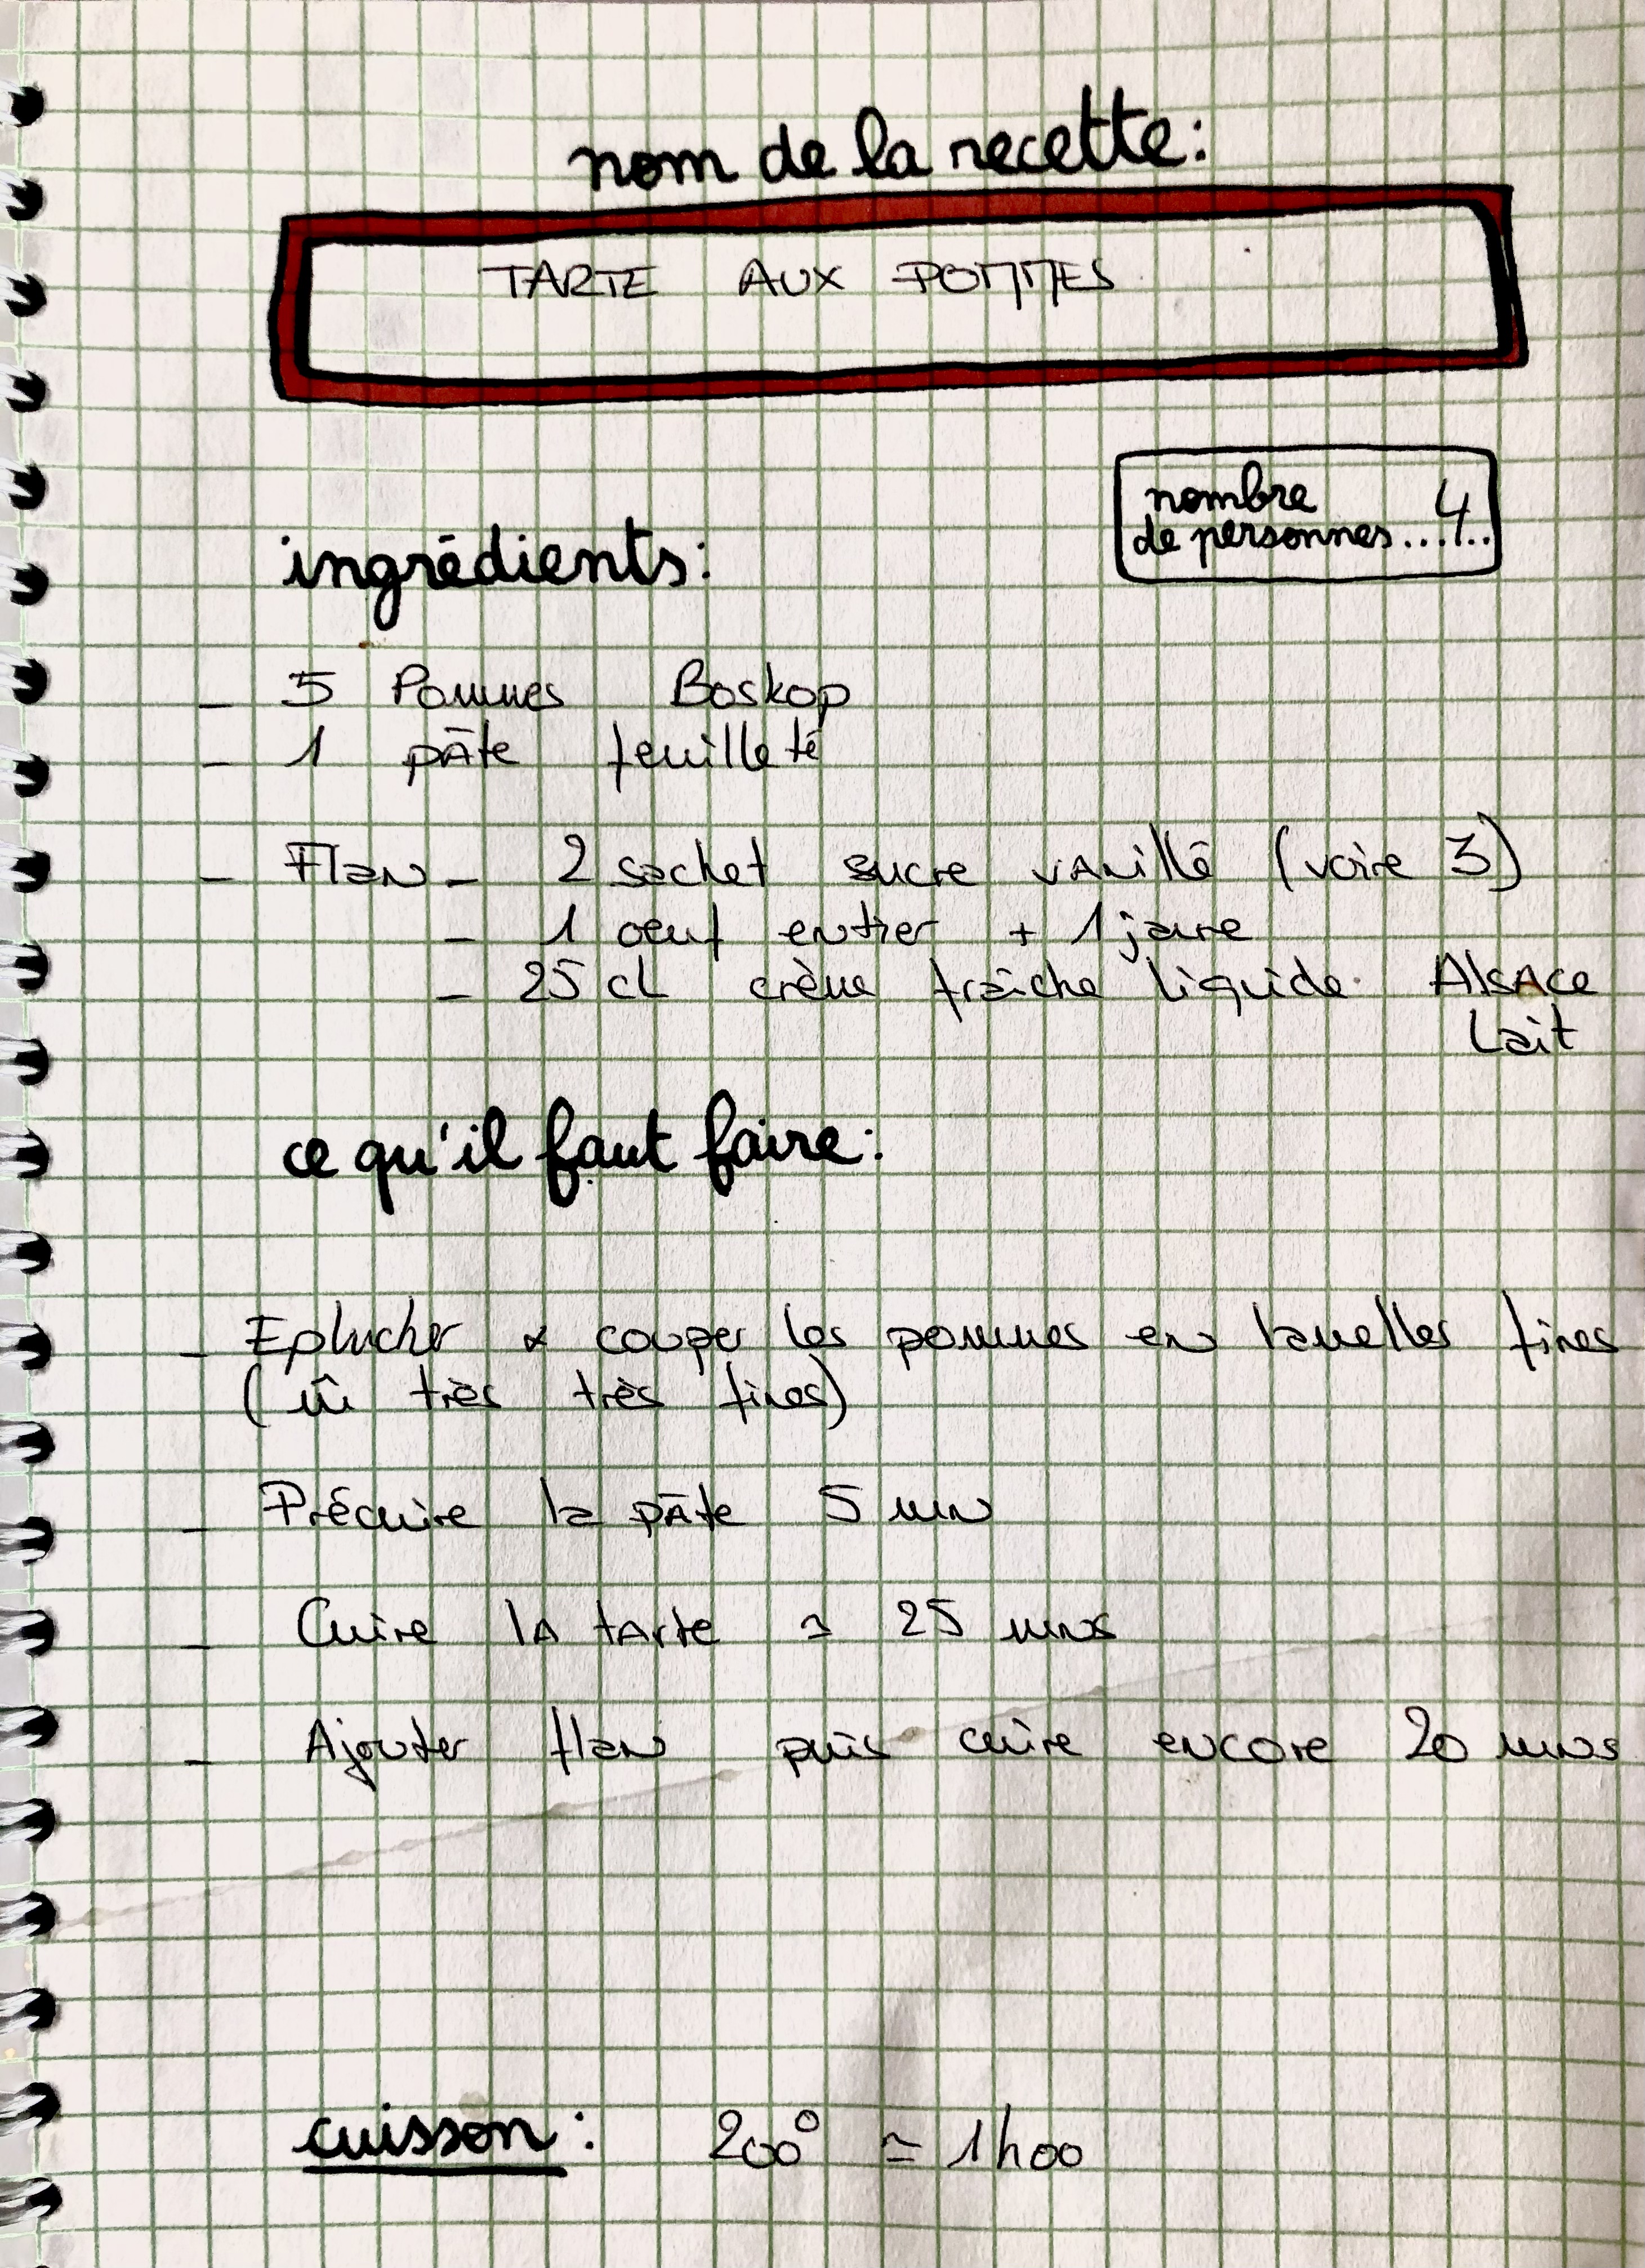 nom de la recette:
TARTE AUX POMMES
nombre 4
de personnes......
ingrédients:
- 5 Pommes Boskop
- 1 pâte feuilleté
- Flan - 2 sachet sucre vanillé (voire 3)
- 1 oeuf entier + 1 jaune
- 25 cl crème fraîche liquide Alsace
Lait
ce qu'il faut faire:
- Eplucher & couper les pommes en lamelles fines
( très très fines)
- Précuire la pâte 5 mn
- Cuire la tarte ≃ 25 mns
- Ajouter flan puis cuire encore 20 mns
cuisson: 200° ≃ 1h00